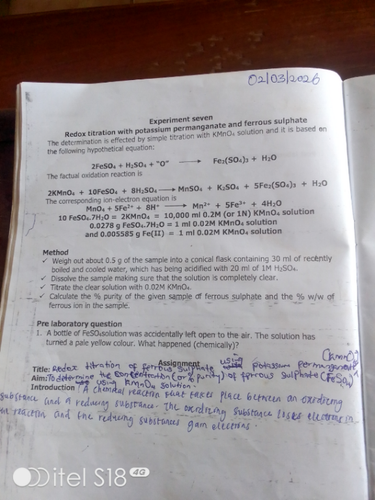 02/03/2026
Experiment seven
Redox titration with potassium permanganate and ferrous sulphate
The determination is effected by simple titration with KMnO₄ solution and it is based on
the following hypothetical equation:
2FeSO₄ + H₂SO₄ + "O" → Fe₂(SO₄)₃ + H₂O
The factual oxidation reaction is
2KMnO₄ + 10FeSO₄ + 8H₂SO₄ → MnSO₄ + K₂SO₄ + 5Fe₂(SO₄)₃ + H₂O
The corresponding ion-electron equation is
MnO₄ + 5Fe²⁺ + 8H⁺ → Mn²⁺ + 5Fe³⁺ + 4H₂O
10 FeSO₄.7H₂O = 2KMnO₄ = 10,000 ml 0.2M (or 1N) KMnO₄ solution
0.0278 g FeSO₄.7H₂O = 1 ml 0.02M KMnO₄ solution
and 0.005585 g Fe(II) = 1 ml 0.02M KMnO₄ solution
Method
✓ Weigh out about 0.5 g of the sample into a conical flask containing 30 ml of recently
boiled and cooled water, which has being acidified with 20 ml of 1M H₂SO₄.
✓ Dissolve the sample making sure that the solution is completely clear.
✓ Titrate the clear solution with 0.02M KMnO₄.
✓ Calculate the % purity of the given sample of ferrous sulphate and the % w/w of
ferrous ion in the sample.
Pre laboratory question
1. A bottle of FeSO₄solution was accidentally left open to the air. The solution has
turned a pale yellow colour. What happened (chemically)?
Assignment
Title: Redox titration of ferrous sulphate using potassium permanganate (KMnO₄)
Aim: To determine the concentration (or % purity) of ferrous sulphate (FeSO₄)
using KMnO₄ solution.
Introduction: A chemical reaction that takes place between an oxidizing
substance and a reducing substance. The oxidizing substance loses electrons in
reaction and the reducing substances gain electrons.
itel S18 4G